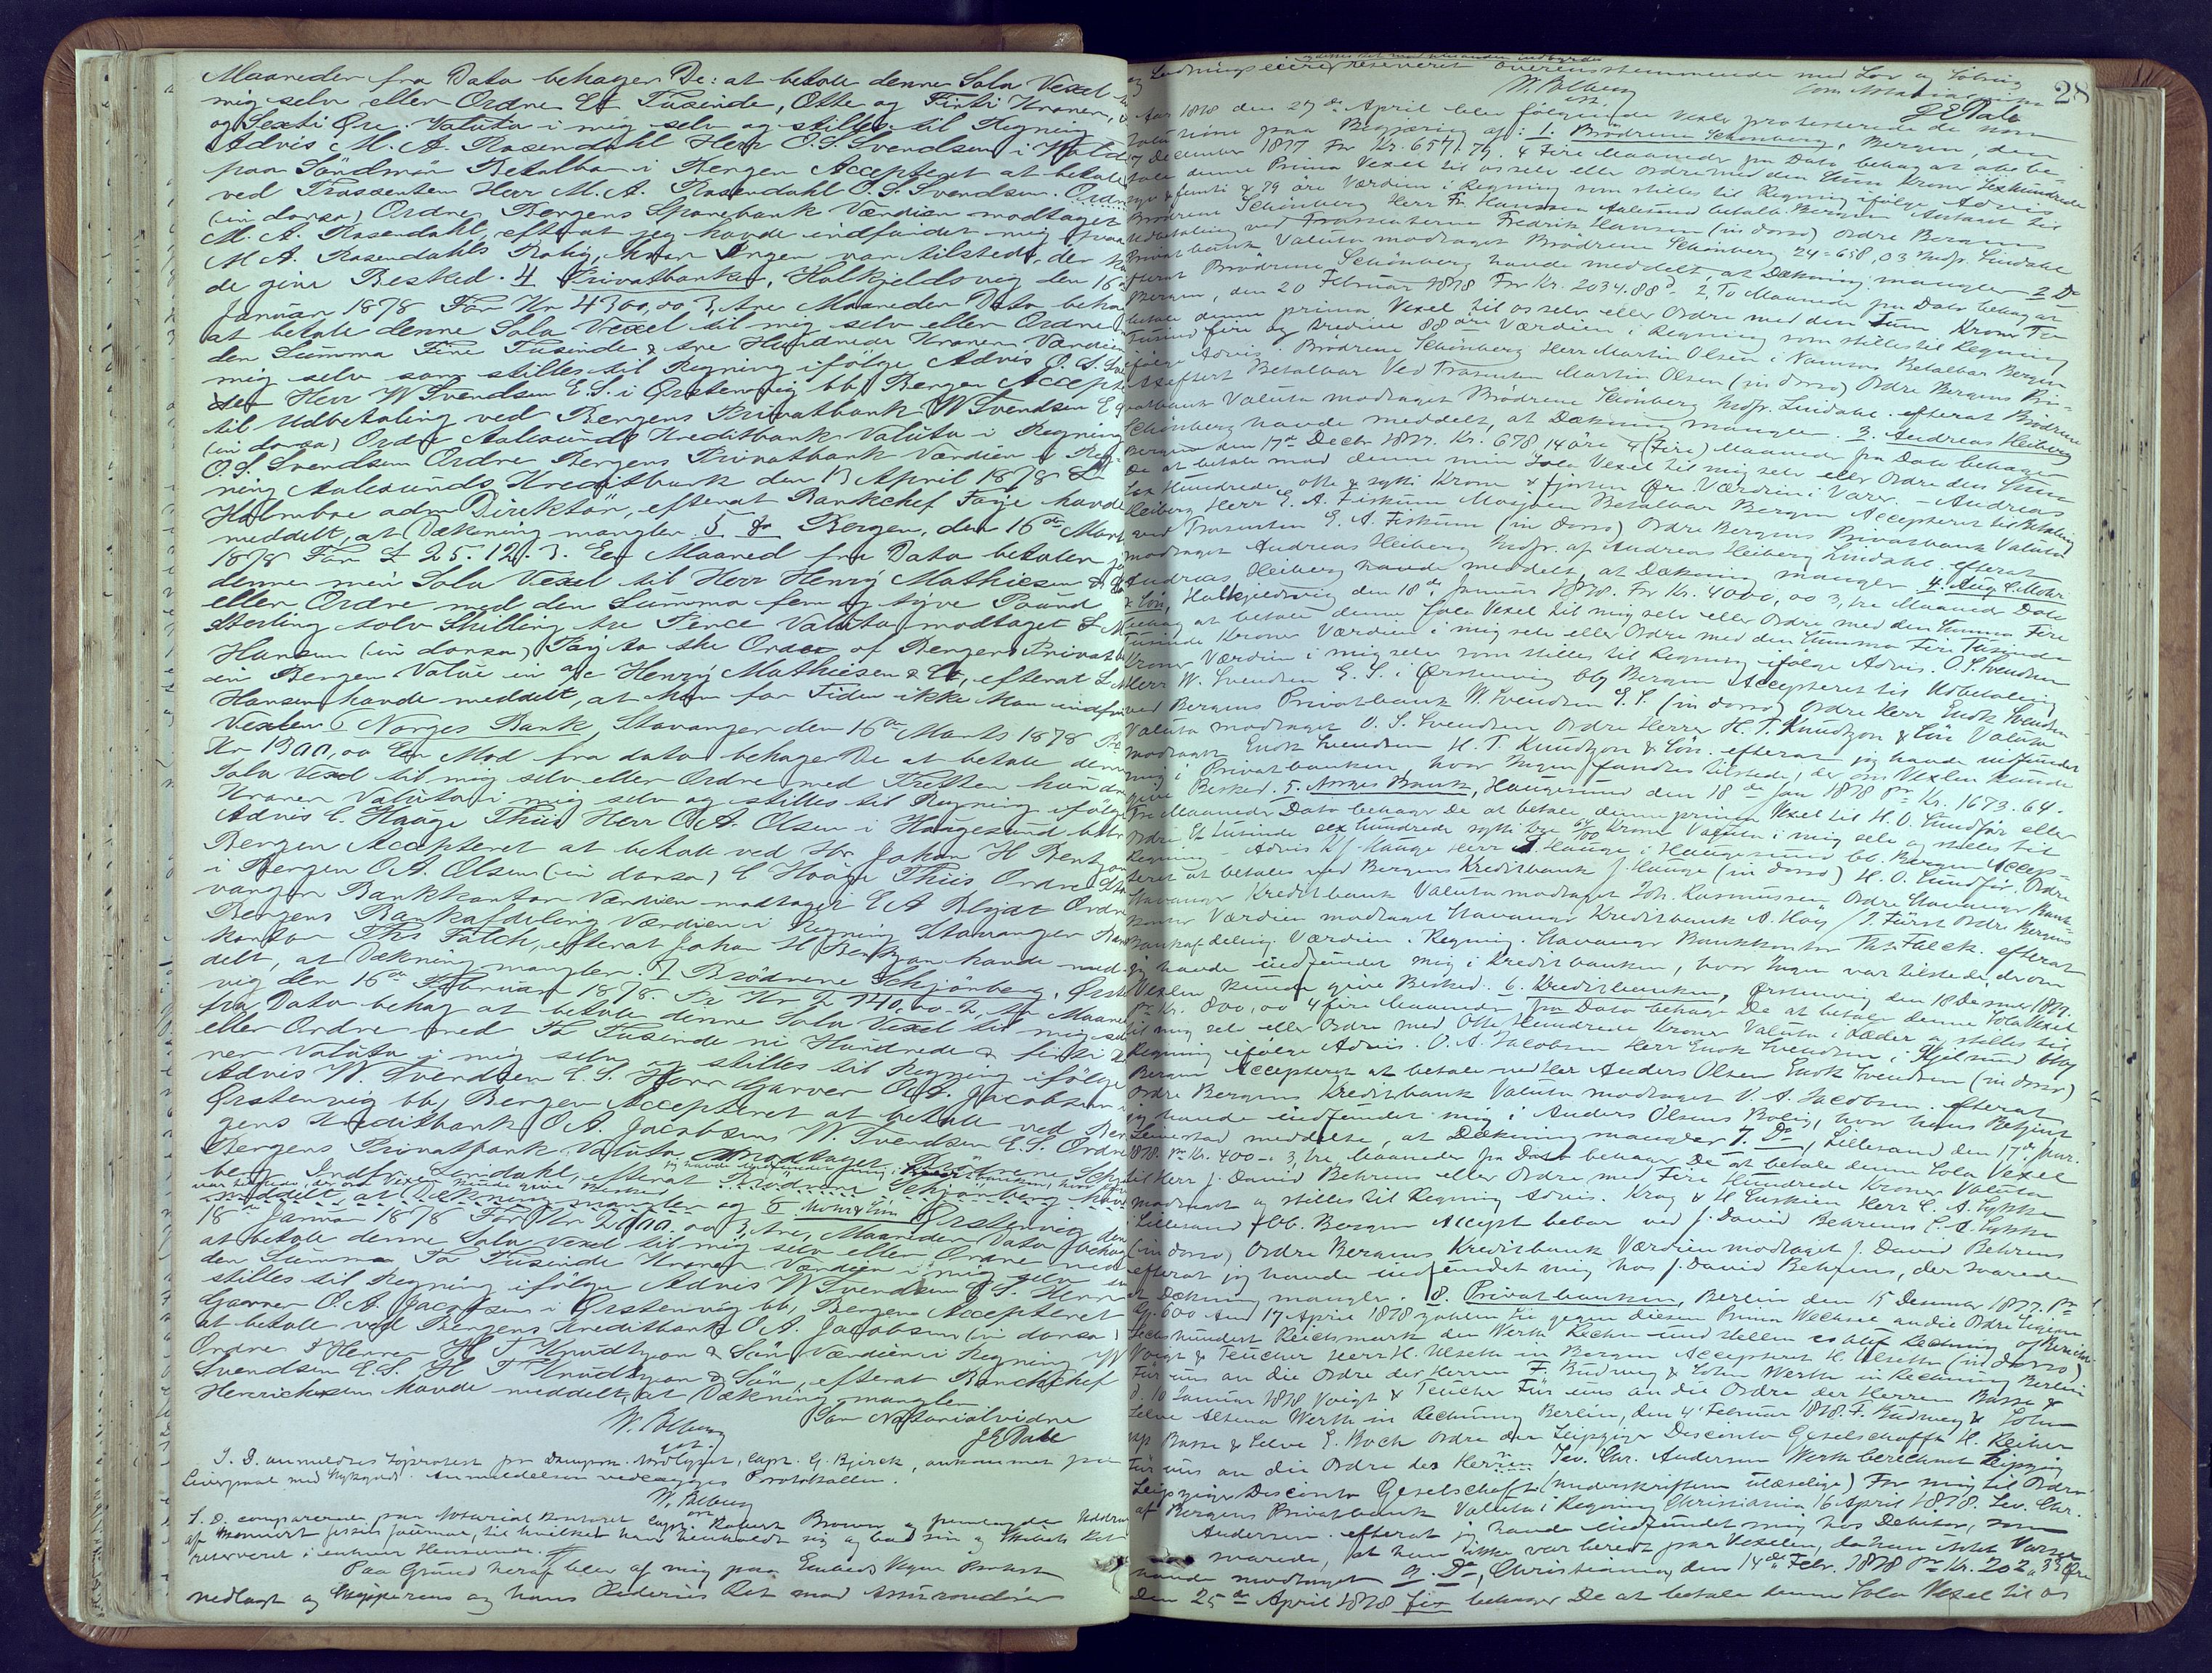 Maaneder fra Dato behager De: at betale denne Sola Vexel
mig selv eller Ordre Et Tusinde, Otte og Firti Kroner,
og Sexti Øre. Valuta i mig selv og stilles til Regning
Advis M. A. Rosendahl Herr O. S. Svendsen i Volde
paa Søndmør Betalbar i Bergen Accepteret at betale
ved Trassenten Herr M. A. Rosendahl O. S. Svendsen. Ordre
(in dorso) Ordre Bergens Sparebank Værdien modtaget
M. A. Rosendahl, efterat jeg havde indfundet mig paa
M A. Rosendahls Bolig, hvor Ingen var tilstede, der kun
de give Besked. 4 Privatbanken, Holkjeldsvig den 16
Januar 1878 For Kr 4300,00 3, tre Maaneder Dato behag
at betale denne Sola Vexel til mig selv eller Ordre
den Summa Fire Tusinde & tre Hundrede Kroner Værdien
mig selv som stilles til Regning ifølge Advis O. S. Sv
den Herr W Svendsen E. S. i Ørstenvig bb/ Bergen Accept
til Udbetaling ved Bergens Privatbank W Svendsen E
(in dorso) Ordre Aalesunds Kreditbank Valuta i Regning
O. S. Svendsen Ordre Bergens Privatbank Værdien i Reg-
ning Aalesunds Kreditbank den 13 April 1878
Holmboe adm Direktør, efterat Bankchef Faye havde
meddelt, at Dækning mangler. 5 do Bergen, den 16de Mart
1878 For £ 25. 12. 3. Een Maaned fra Dato betaler
denne min Sola Vexel til Herr Henry Mathiesen &
eller Ordre med den Summa fem og tyve Pound
Sterling tolv Shilling tre Pence Valuta modtaget
Hansen (in dorso) Pay to the Order of Bergens Privat
in Bergen Value in a/c Henry Mathiesen & Co, efterat
Hansen havde meddelt, at han for Tiden ikke kan indfri
Vexlen 6 Norges Bank, Stavanger den 16de Marts 1878
Kr 1300,00 Een Mod fra dato behager De at betale denne
Sola Vexel til mig selv eller Ordre med Tretten hundre
Kroner Valuta i mig selv og stilles til Regning ifølge
Advis C. Haage Thiis Herr O. A. Olsen i Haugesund
Bergen Accepteret at betale ved Hr Johan H Bentzon
i Bergen O. A. Olsen (in dorso) C Haage Thiis Ordre
vanger Bankkontor Værdien modtaget Ordre
Bergens Bankafdeling Værdien i Regning Stavanger
kontor Ths Falch, efterat Johan H Bentzon havde med
delt, at Dækning mangler. 7 Brødrene Schjønberg, Ørst
vig den 16de Februar 1878. Kr 2940,00. 2, to Maane
fra Dato behag at betale denne Sola Vexel til mig sel
eller Ordre med To Tusinde ni Hundrede & firti
ner Valuta i mig selv og stilles til Regning ifølge
Advis W. Svendsen E. S. Herr Garver O. A. Jacobsen
Ørstenvig bb/ Bergen Accepteret at betale ved
gens Kreditbank O. A. Jacobsen W. Svendsen E. S. Ordre
Bergens Privatbank Valuta modtaget Brødrene Schj
berg Indfør. Lindahl, efterat Brødrene Schjønberg hav
meddelt, at Dækning mangler og 8 Mohr & Søn Ørstenvig den
18de Januar 1878 For Kr 2000.00 3, tre, Maaneder Dato behag
at betale denne Sola Vexel til mig selv eller Ordre med
den Summa To Tusinde Kroner Værdien i mig selv
stilles til Regning ifølge Advis W Svendsen E. S. Herr
Garver O. A. Jacobsen i Ørstenvig bb, Bergen Accepteret
at betale ved Bergens Kreditbank O A. Jacobsen (in dorso)
Ordre Herrer H. T Knudtzon & Søn Værdien i Regning W
Svendsen E. S. H T Knudtzon & Søn, efterat Bankchef
Henrichsen havde meddelt, at Dækning mangler
Som Notarialvidne
J E Dahl
S. D. anmeldtes Søprotest fra Dampsk. Nordlyset, Capt. G. Bjerck, ankommet fra
Liverpool med Stykgods. Anmeldelsen vedlægges Protokollen.
S. D. comparerede paa Notarial Kontoret Capt. Robert Brown og fremlagde
af journal, til hvilket han henholdt sig og bad sin og Skibets Ret
reserveret i enhver Henseende.
Paa Grund heraf blev af mig paa Embeds Vegne Protest
nedlagt og Skipperens og hans Rederies Ret mod Assurandører
28
og Ladningseiere reserveret overensstemmende med Lov og Søbrug
Som Notarialvidne
J E Dahl
Aar 1878 den 27de April blev følgende Vexler protesterede de
paa Begjæring af: 1. Brødrene Schønberg, Bergen, den
17 December 1877 For Kr. 657. 79. 4 Fire Maaneder fra Dato behag at be-
tale denne Prima Vexel til os selv eller Ordre med den Sum Kroner Sexhundrede
syv & femti & 79 øre Værdien i Regning som stilles til Regning ifølge Advis
Brødrene Schönberg Herr Fr. Hanssen Aalesund betalb. Bergen Antaet til
Udbetaling ved Trassenterne Fredrik Hansen (in dorso) Ordre Bergens
Privatbank Valuta modtaget Brødrene Schønberg 24 = 658,03 Indfr. Lindahl
efterat Brödrene Schönberg havde meddelt, at Dækning mangler 2 Do
Bergen, den 20 Februar 1878 For Kr. 2034.88. 2 To Maaneder fra Dato behag at
betale denne prima Vexel til os selv eller Ordre med den Sum Kroner To
tusind fire og tredive 88 øre Værdien i Regning som stilles til Regning
ifølge Advis. Brödrene Schönberg Herr Martin Olsen i Namsos Betalbar Bergen
Accepteret Betalbar Ved Trasenten Martin Olsen (in dorso) Ordre Bergens Pri-
vatbank Valuta modtaget Brödrene Schönberg Indfr. Lindahl. efterat Brödrene
Schönberg havde meddelt, at Dækning mangler. 3. Andreas Heiberg
Bergen den 17de Decbr 1877. Kr. 678 14 øre 4 (Fire) Maaneder fra Dato behager
De at betale mod denne min Sola Vexel til mig selv eller Ordre den Sum
Sex Hundrede otte & sytti Kroner & fjorten Øre Værdien i Varer. – Andreas
Heiberg Herr E. A. Fiskum Mosjøen Betalbar Bergen Accepteret til Betaling
ved Trasenten E. A. Fiskum (in dorso) Ordre Bergens Privatbank Valuta
modtaget Andreas Heiberg Indfr. af Andreas Heiberg Lindahl. efterat
Andreas Heiberg havde meddelt, at Dækning mangler 4. Aug. C. Mohr
& Søn, Holkjeldsvig den 18de Januar 1878. For Kr. 4000,00 3, tre Maaneder Dato
behag at betale denne Sola Vexel til mig selv eller Ordre med den Summa Fire
Tusinde Kroner Værdien i mig selv eller Ordre med den Summa Fire Tusinde
Kroner Værdien i mig selv som stilles til Regning ifølge Advis. O. S. Svendsen
Herr W. Svendsen E. S. i Ørstenvig bb/ Bergen Accepteret til Udbetaling
ved Bergens Privatbank W. Svendsen E. S. (in dorso) Ordre Herr Enok Svendsen
Valuta modtaget O. S. Svendsen Ordre Herrer H. T. Knudtzon & Søn Valuta
modtaget Enok Svendsen H. T. Knudtzon & Søn. efterat jeg havde indfundet
mig i Privatbanken, hvor Ingen fandtes tilstede, der om Vexlen kunde
give Besked. 5. Norges Bank, Haugesund den 18de Jan 1878 pr Kr. 1673.64.
Tre Maaneder Dato behager De at betale denne prima Vexel til H. O. Sundför eller
Ordre Et tusinde sex hundrede sytti tre 64/100 Kroner Valuta i mig selv og stilles til
Regning – Advis K J. Hauge Herr J. Hauge i Haugesund bb. Bergen Accep-
teret at betales ved Bergens Kreditbank J. Hauge (in dorso) H. O. Sundför, Ordre
Stavanger Kreditbank Valuta modtaget Joh. Rasmussen, Ordre Stavanger Bank-
kontor Værdien modtaget Stavanger Kreditbank A. Kloy / J. Fürst Ordre Bergens
Bankafdeling. Værdien i Regning. Stavanger Bankkontor Ths. Falck. efterat
jeg havde indfundet mig i Kreditbanken, hvor Ingen var tilstede, der om
Vexlen kunde give Besked. 6. Kreditbanken, Ørstenvig den 18 December 1877.
pr Kr. 800,00 4 fire Maaneder fra Dato behage De at betale denne Sola Vexel
til mig selv eller Ordre med Otte Hundrede Kroner Valuta i Læder og stilles til
Regning ifølge Advis. O. A. Jacobsen Herr Enok Svendsen i Kjelsund bb/
Bergen Accepteret at betale ved Herr Anders Olsen Enok Svendsen (in dorso)
Ordre Bergens Kreditbank Valuta modtaget O. A. Jacobsen. efterat
jeg havde indfundet mig i Anders Olsens Bolig, hvor hans Betjent
meddelte, at Dækning mangler 7. Do, Lillesand den 17de Jan.
1878. Pr Kr. 400– 3, tre, Maaneder fra Dato behager De at betale denne Sola Vexel
til Herr J. David Behrens eller Ordre med Fire Hundrede Kroner Valuta
modtaget og stilles til Regning Advis. Krog & H Herr C. A. Lykke
i Lillesand bb. Bergen Accept betbar ved J. David Behrens C. A. Lykke
(in dorso) Ordre Bergens Kreditbank Værdien modtaget J. David Behrens
efterat jeg havde indfundet mig hos J. David Behrens, der svarede
at Dækning mangler. 8. Privatbanken, Berlin den 15 December 1877. Pr
600 Am 17 April 1878 zahlen Sie gegen diesen Prima Wechsel an die Ordre
Sechshundert Reichsmark den Werth Rechn und stellen es auf Rechnung of Bericht
Voigt & Teucher Herr H. Ulseth in Bergen Accepteret H. Ulseth (in dorso)
Für uns an die Ordre der Herren F. Budweg & Sohn Werth in Rechnung Berlin
d. 10 Januar 1878 Voigt & Teucher Für uns an die Ordre der Herren Basse &
Selve Altena Werth in Rechnung Berlin, den 4 Februar 1878. F. Budweg & Sohn
pp Basse & Selve E. Boch Ordre der Leipziger Disconto Gesellschaft H. Reiher
Für uns an die Ordre des Herrn Jev. Chr. Andersen Werth berechnet Leipzig
Leipziger Disconto Geselschaft (underskriften ulæselige) For mig til Ordre
af Bergens Privatbank Valuta i Regning Christiania 16 April 1878. Jev. Chr.
Andersen. efterat jeg havde indfundet mig hos Debitor, som
svarede, at han ikke var beredt paa Vexelen, da han intet Varsel
havde modtaget 9. Do, Christiania, den 14de Febr. 1878 pr Kr. 202,33 Øre
Den 25de April 1878 fix behager De at betale denne Sola Vexel til os